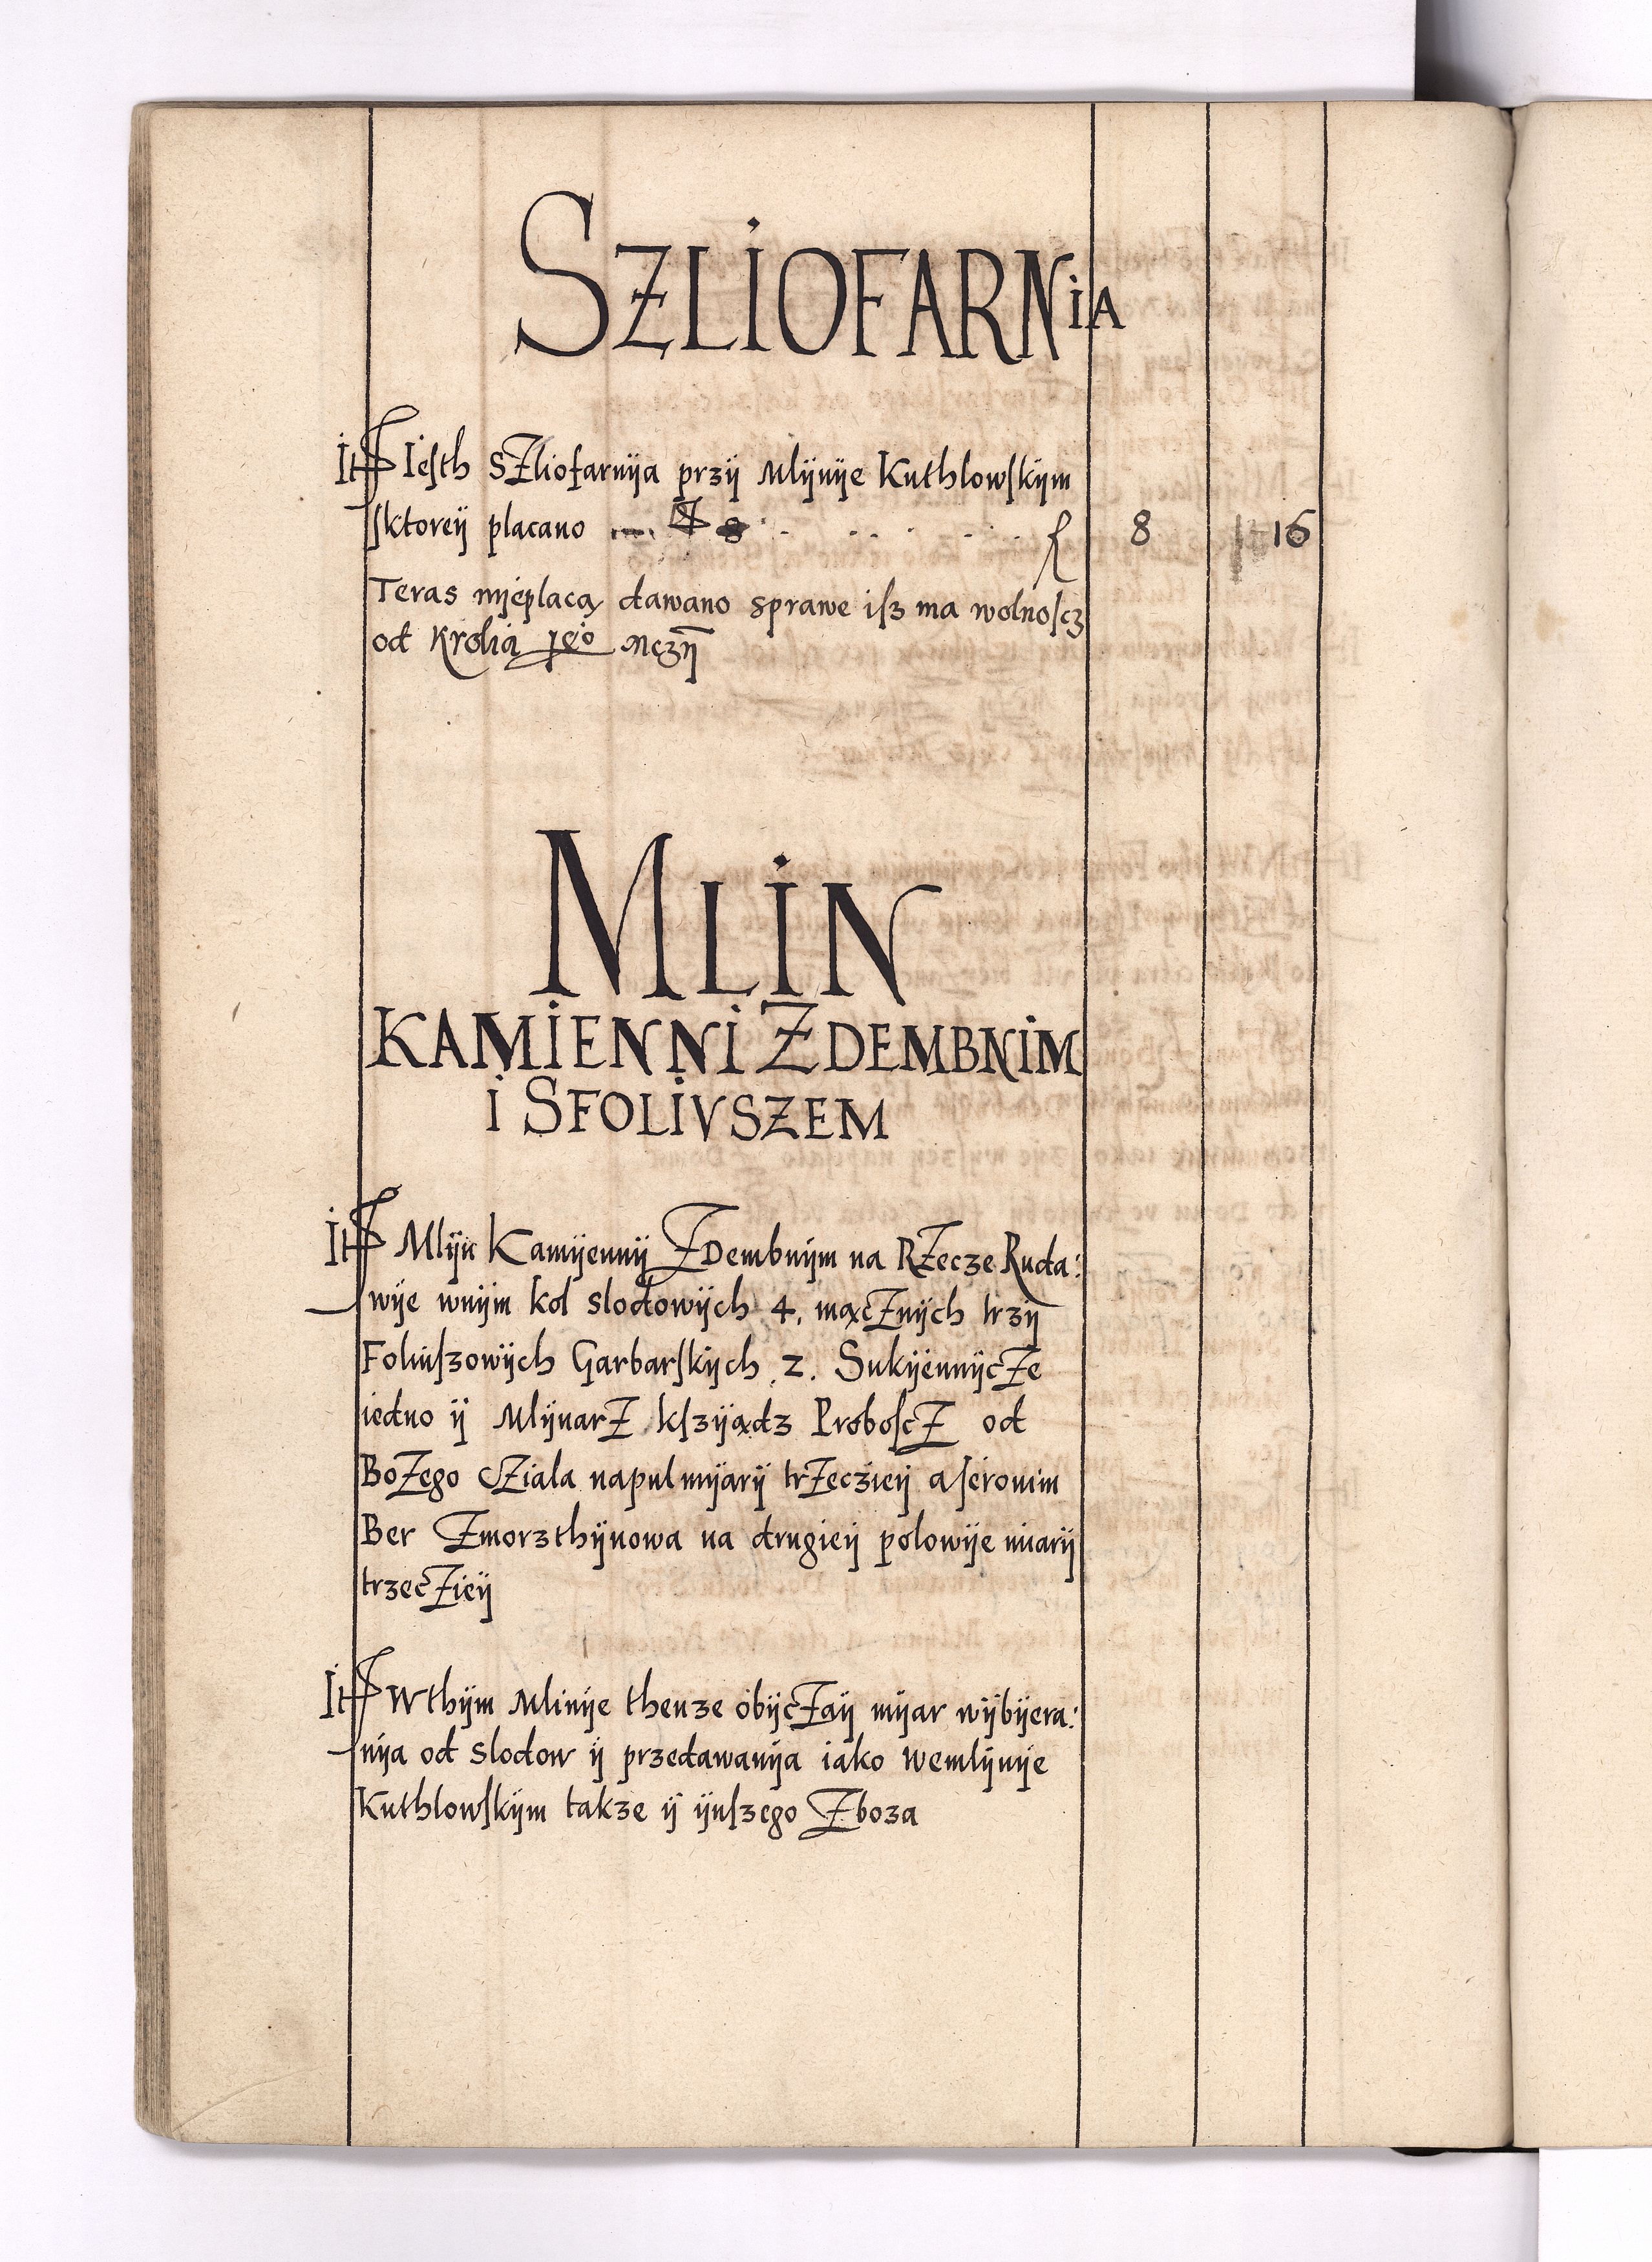 SZLIOFARNiA
It Iesth SZliofarnÿa przÿ Mlÿnÿe Kuthlowskÿm
sktoreÿ placano f 8 16
Teras nÿeplacą dawano sprawe isz ma wolnoscz
od Krolia Jeo Mczÿ
MLIN
KAMIENNI ZDEMBNIM
i SFOLIVSZEM
It Mlÿn Kamÿennÿ ZDembnÿm na RZecze Ruda:
wÿe wnÿm kol slodowÿch 4. mącZnÿch trzÿ
Foliuszowÿch Garbarskÿch .2. SukÿennÿcZe
iedno ÿ MlÿnarZ kszÿądz ProboscZ od
BoZego cZiala napulmÿarÿ trZeczieÿ a seronim
Ber Zmorzthÿnowa na drugieÿ polowÿe miarÿ
trzecZieÿ
It Wthÿm Mlinÿe thenze obÿcZaÿ mÿar wÿbÿera:
nÿa od slodow ÿ przedawanÿa iako wemlÿnÿe
Kuthlowskÿm takze ÿ ÿnszego Zboza